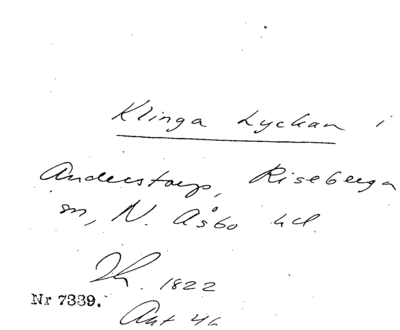 Klinga Lyckan i
Anderstorp, Riseberga
sn, N. Åsbo hd.
Th. 1822
Nr 7339.
Akt 46